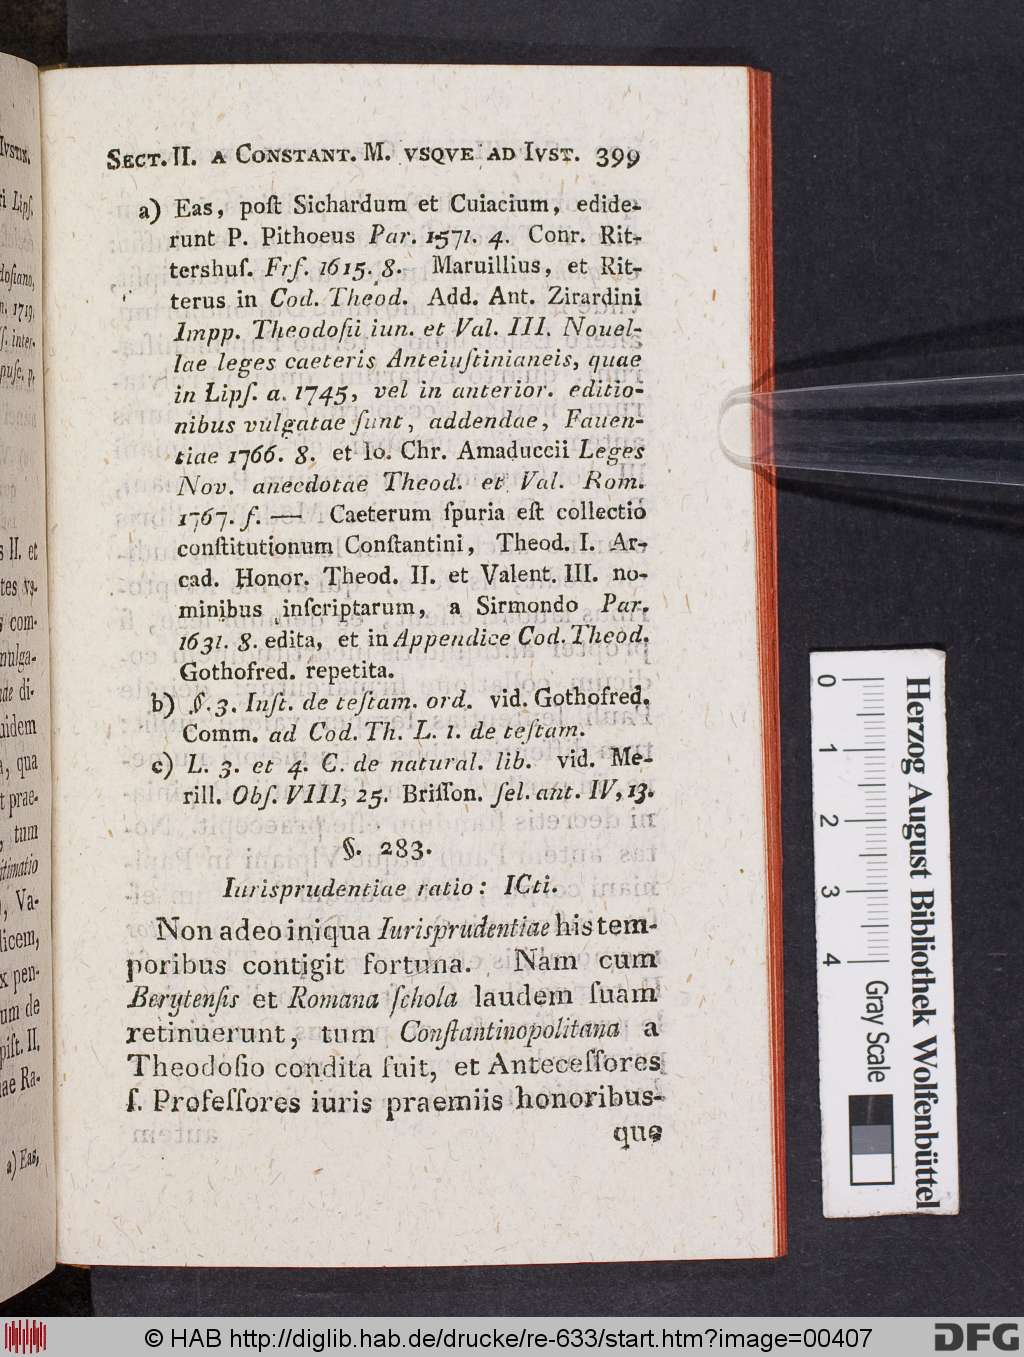 SECT. II. A CONSTANT. M. VSQVE AD IVST. 399
a) Eas, poſt Sichardum et Cuiacium, edide-
runt P. Pithoeus Par. 1571. 4. Conr. Rit-
tershuſ. Frf. 1615. 8. Maruillius, et Rit-
terus in Cod. Theod. Add. Ant. Zirardini
Impp. Theodoſii iun. et Val. III. Nouel-
lae leges caeteris Anteiuſtinianeis, quae
in Lipſ. a. 1745, vel in anterior. editio-
nibus vulgatae ſunt, addendae, Fauen-
tiae 1766. 8. et Io. Chr. Amaduccii Leges
Nov. anecdotae Theod. et Val. Rom.
1767. f. — Caeterum ſpuria eſt collectio
conſtitutionum Conſtantini, Theod. I. Ar-
cad. Honor. Theod. II. et Valent. III. no-
minibus inſcriptarum, a Sirmondo Par.
1631. 8. edita, et in Appendice Cod. Theod.
Gothofred. repetita.
b) §. 3. Inſt. de teſtam. ord. vid. Gothofred.
Comm. ad Cod. Th. L. 1. de teſtam.
c) L. 3. et 4. C. de natural. lib. vid. Me-
rill. Obſ. VIII, 25. Briſſon. ſel. ant. IV, 13.
§. 283.
Iurisprudentiae ratio: ICti.
Non adeo iniqua Iurisprudentiae his tem-
poribus contigit fortuna. Nam cum
Berytenſis et Romana ſchola laudem ſuam
retinuerunt, tum Conſtantinopolitana a
Theodoſio condita fuit, et Anteceſſores
ſ. Profeſſores iuris praemiis honoribus-
que
IVSTIN.
Lipſ.
n. 1719,
II. et
com-
mulga-
di-
uidem
qua
prae-
tum
Va-
licem,
pen-
um de
piſt. II.
ae Ra-
a) Eas,
0
1
2
3
4
Gray Scale
Herzog August Bibliothek Wolfenbüttel
© HAB http://diglib.hab.de/drucke/re-633/start.htm?image=00407
DFG